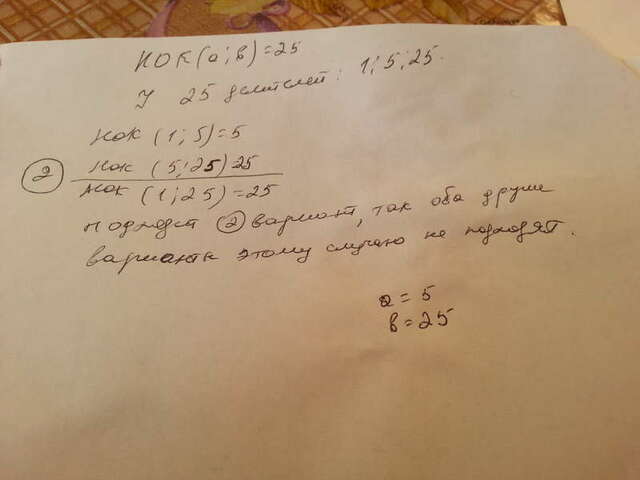 НОК(а;в)=25
У 25 делителей: 1;5;25.
НОК (1;5)=5
② НОК (5;25) 25
НОК (1;25)=25
Подходит ② вариант, так оба другие
варианта этому случаю не подходят.
а=5
в=25